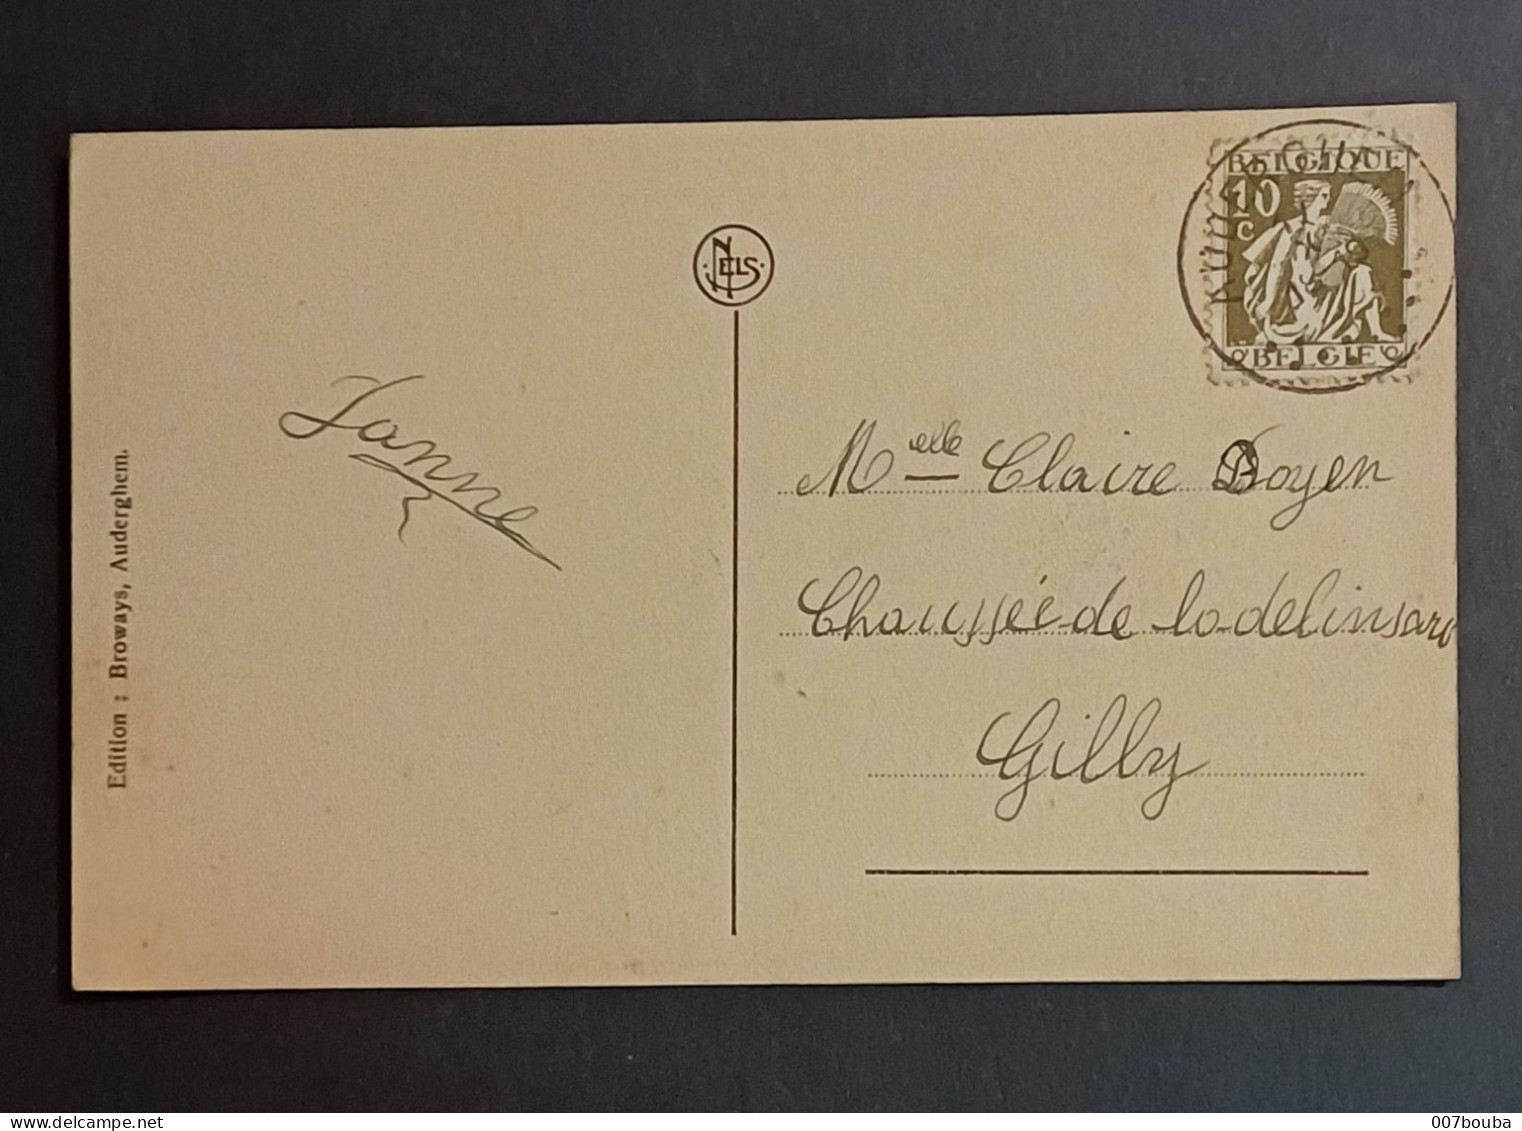 BELGIQUE
10
C
BELGIE
NELS
Edition : Broways, Auderghem.
Janne
Melle Claire Doyen
Chaussée de Lodelinsart
Gilly
delcampe.net
007bouba